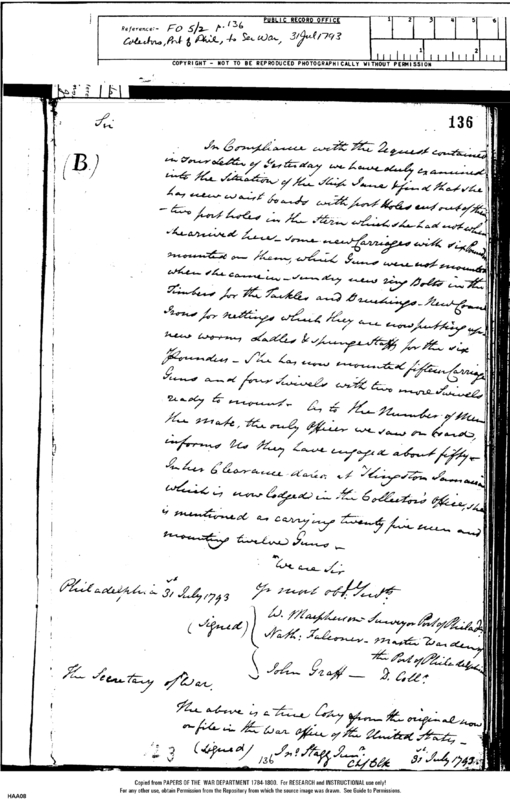 PUBLIC RECORD OFFICE
Reference:- FO 5/2 p.136
Colectors, Port of Phil, to Sec War, 31 Jul 1793
1 2 3 4 5 6
1 2
COPYRIGHT - NOT TO BE REPRODUCED PHOTOGRAPHICALLY WITHOUT PERMISSION
136
Sir
(B.)
In Compliance with the Request contained
in Your Letter of Yesterday we have duly examined
into the Situation of the Ship Jane & find that she
has new waist boards with port Holes cut out of them
- two port holes in the Stern which she had not when
She arrived here - some new Carriages with six Pound
mounted on them, which Guns were not mounted
when she came in - sundry new ring Bolts in the
Timbers for the Tackles and Breechings - New Crane
Irons for nettings which they are now putting up
new worms Ladles & spunge Staffs for the six
Pounders - She has now mounted fifteen Carriage
Guns and four Swivels with two more Swivels
ready to mount - As to the Number of Men
the mate, the only Officer we saw on board,
informs Us they have engaged about fifty -
In her Clearance dated at Kingston Jamaica
which is now lodged in the Collector's Office, she
is mentioned as carrying twenty five men and
mounting twelve Guns -
We are Sir
Philadelphia 31st July 1793
Yr most obdt Servts
(signed)
W. Macpherson - Surveyor Port of Philada
Nath: Falconer - Master Warden
the Port of Philadelphia
John Graff - D. Collr
The Secretary of War.
The above is a true Copy from the original now
on file in the War Office of the United States -
23
(signed)
136
Jno Stagg Junr
Ch Clk
31st July 1793
Copied from PAPERS OF THE WAR DEPARTMENT 1784-1800. For RESEARCH and INSTRUCTIONAL use only!
For any other use, obtain Permission from the Repository from which the source image was drawn. See Guide to Permissions.
HAA08